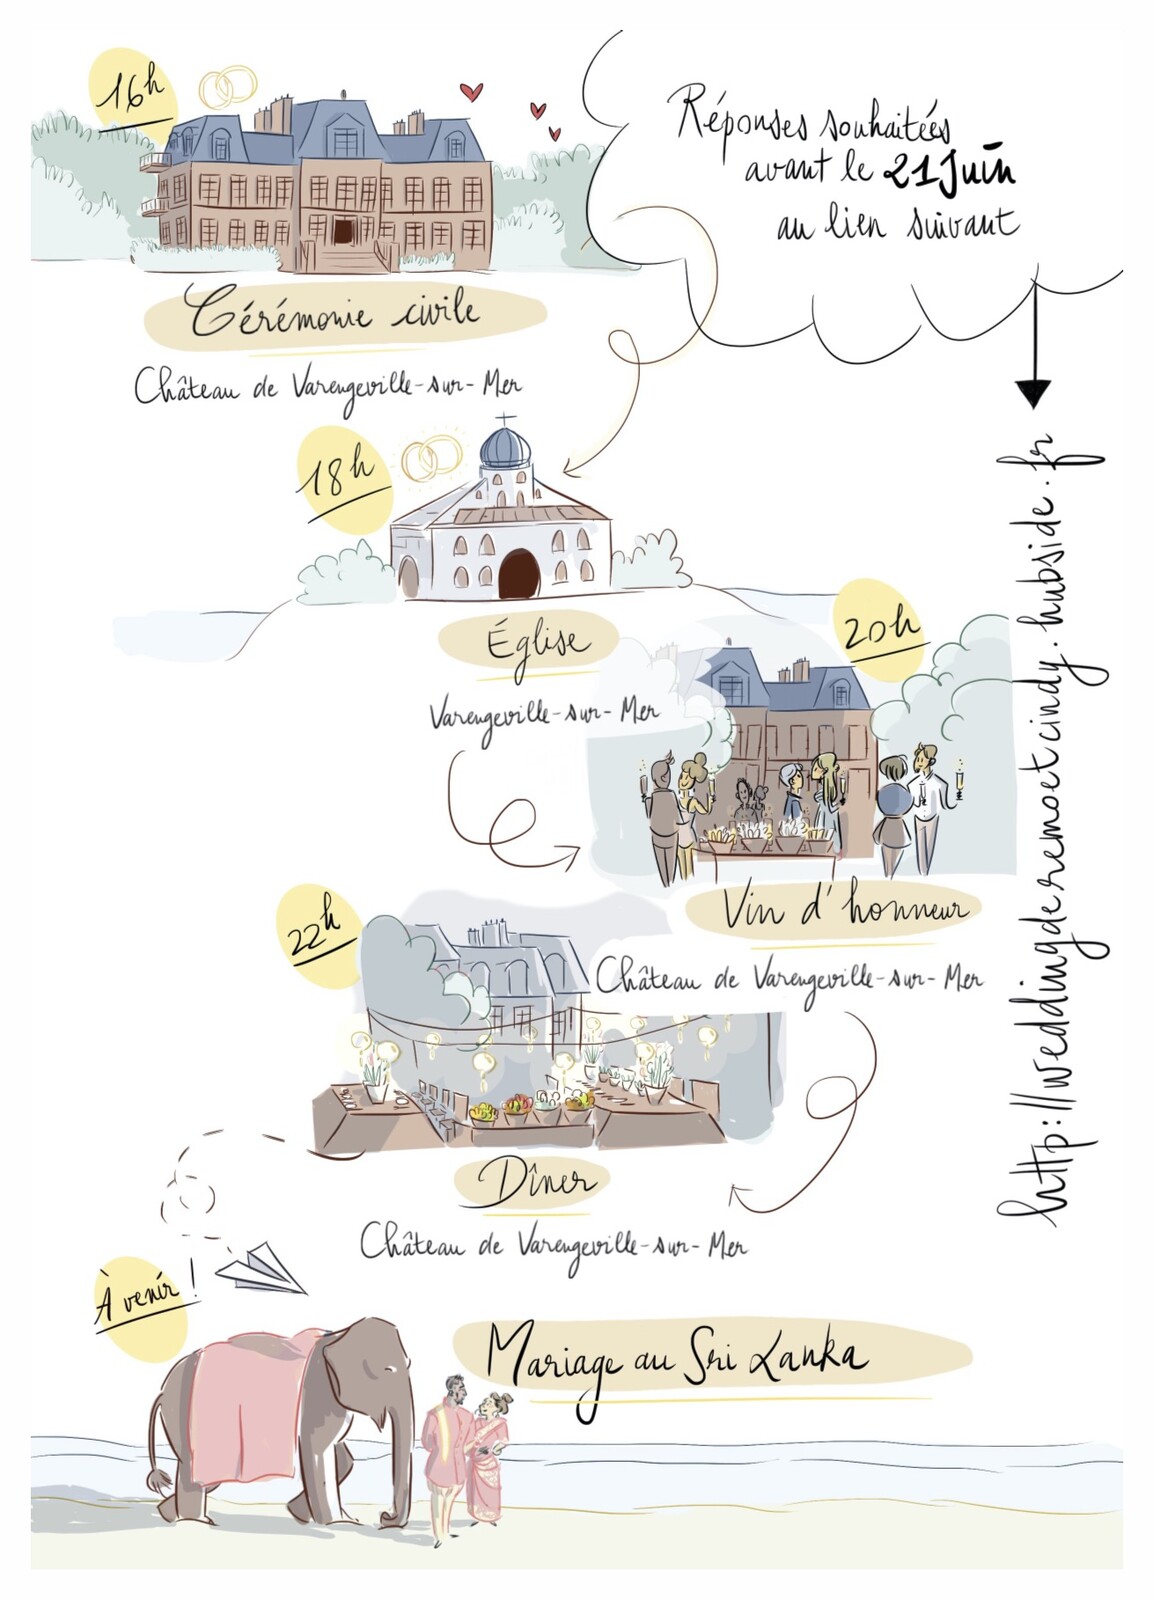 16h
Réponses souhaitées
avant le 21 Juin
au lien suivant
http://weddingderemoetcindy.hubside.fr
Cérémonie civile
Château de Varengeville-sur-Mer
18h
Église
Varengeville-sur-Mer
20h
Vin d'honneur
Château de Varengeville-sur-Mer
22h
Dîner
Château de Varengeville-sur-Mer
À venir !
Mariage au Sri Lanka